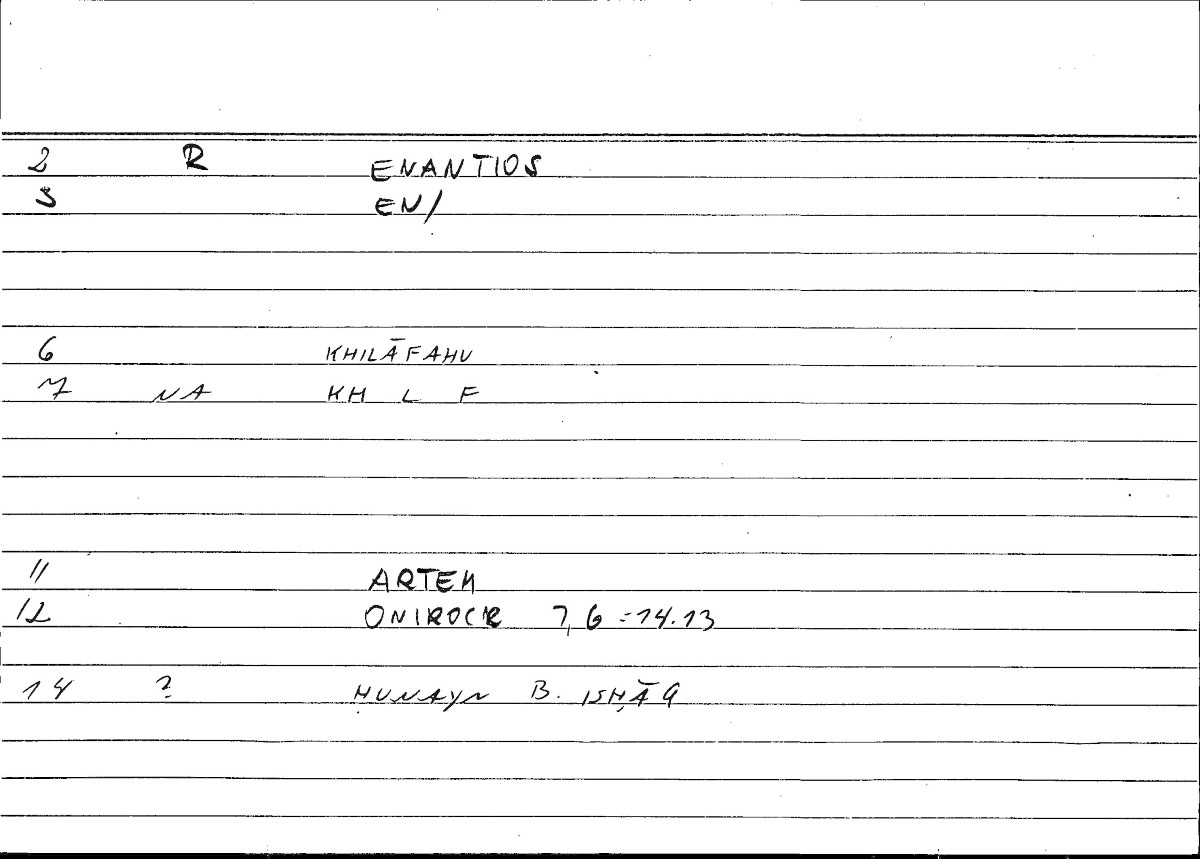 2 R ENANTIOS
3 EN/
6 KHILĀFAHU
7 NA KH L F
11 ARTEM
12 ONIROCR 7,6 = 14.13
14 ? ḤUNAYN B. ISḤĀQ